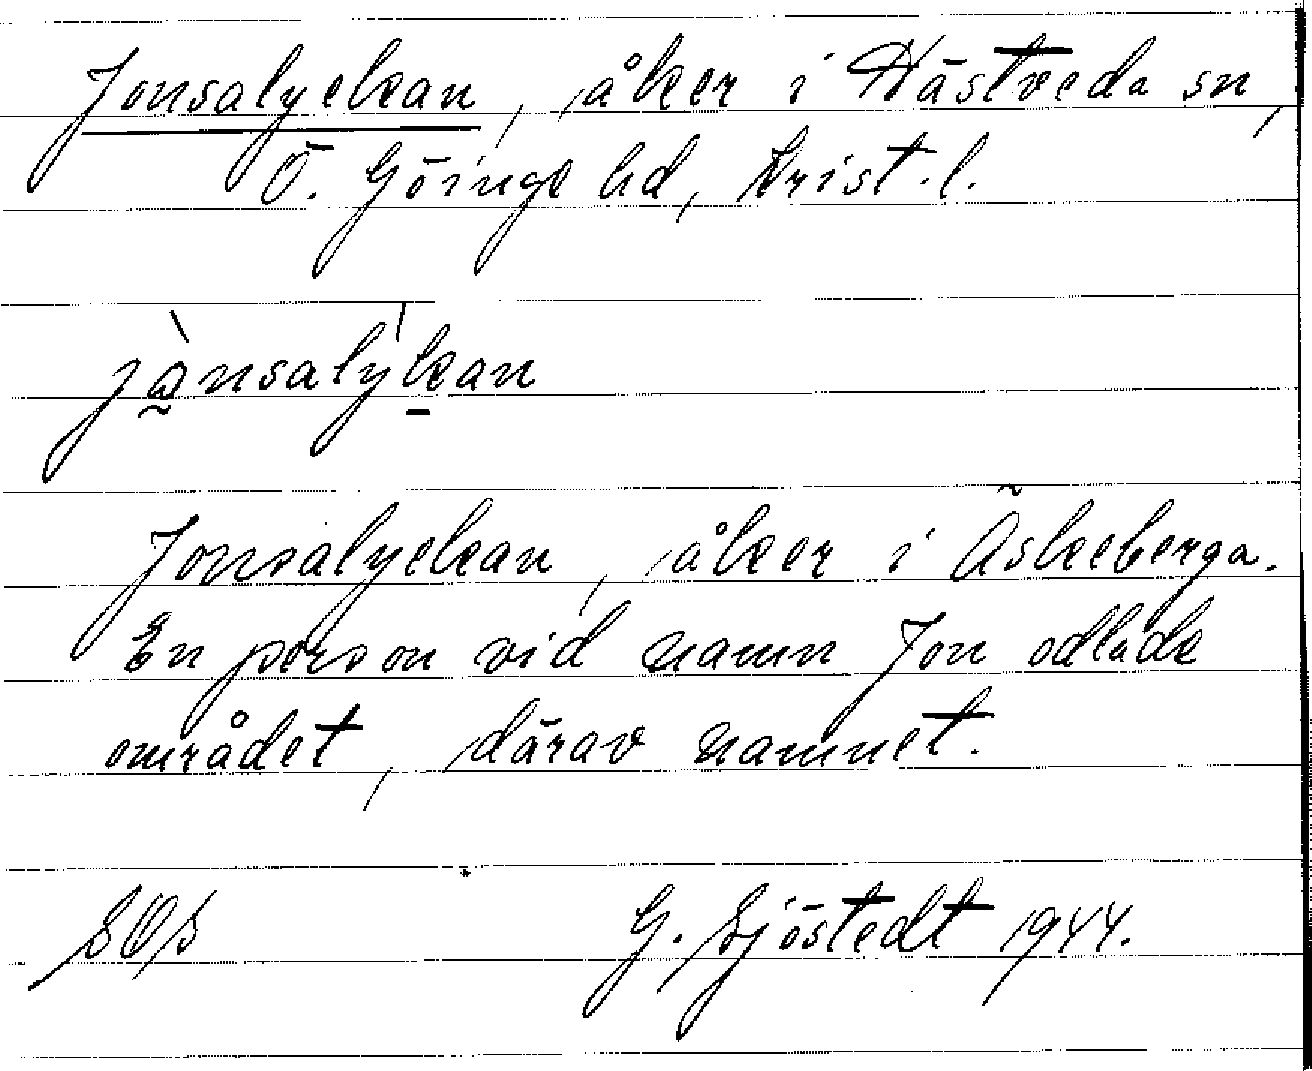 Jonsalyckan, åker i Hästveda sn,
Ö. Göinge hd, Krist. l.
Jonsalyckan, åker i Äskeberga.
En person vid namn Jon odlade
området, därav namnet.
G. Sjöstedt 1944.